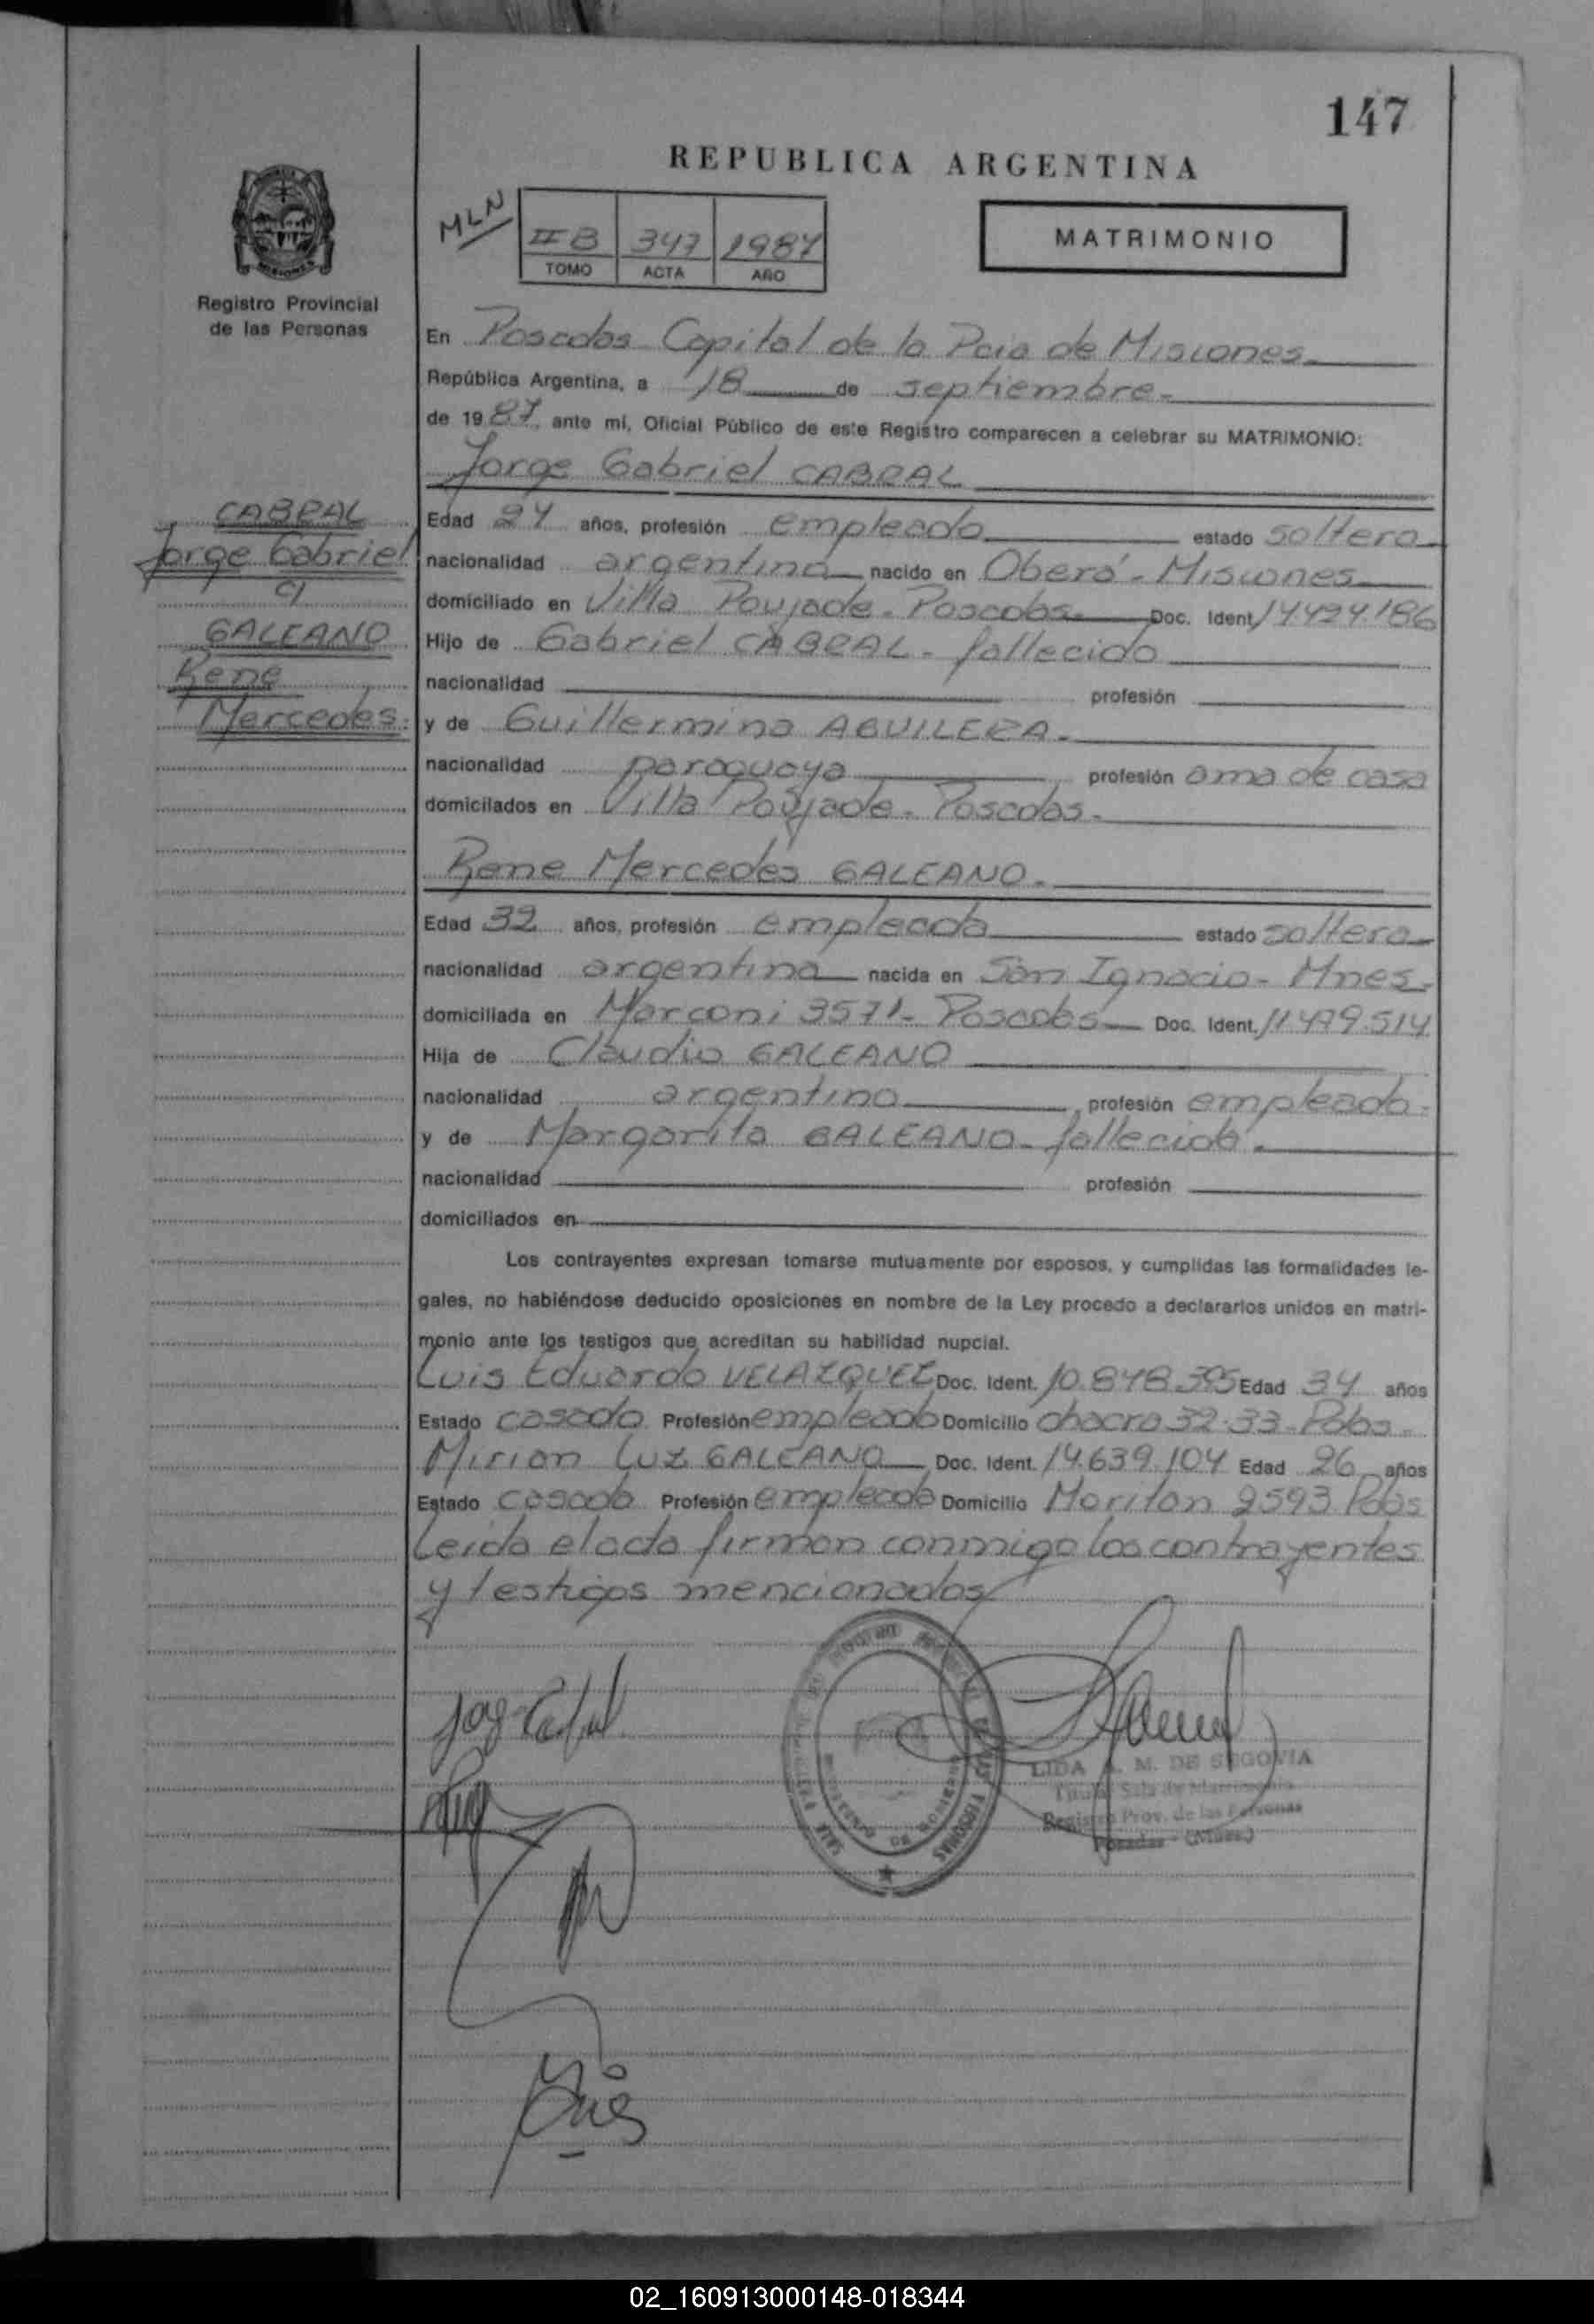 147
REPUBLICA ARGENTINA
MLN
II B 347 1987
TOMO ACTA AÑO
MATRIMONIO
MISIONES
Registro Provincial
de las Personas
En Posadas Capital de la Pcia de Misiones
República Argentina, a 18 de septiembre
de 1987, ante mí, Oficial Público de este Registro comparecen a celebrar su MATRIMONIO:
Jorge Gabriel CABRAL
CABRAL
Jorge Gabriel
c/
GALEANO
Rene
Mercedes.
Edad 24 años, profesión empleado estado soltero
nacionalidad argentina nacido en Oberá - Misiones
domiciliado en Villa Poujade - Posadas Doc. Ident. 14.424.186
Hijo de Gabriel CABRAL - fallecido
nacionalidad profesión
y de Guillermina AGUILERA.
nacionalidad paraguaya profesión ama de casa
domicilados en Villa Poujade - Posadas.
Rene Mercedes GALEANO.
Edad 32 años, profesión empleada estado soltera
nacionalidad argentina nacida en San Ignacio - Mnes.
domiciliada en Marconi 3571 - Posadas Doc. Ident. 11.479.514
Hija de Claudio GALEANO
nacionalidad argentino profesión empleado.
y de Margarita GALEANO - fallecida.
nacionalidad profesión
domiciliados en
Los contrayentes expresan tomarse mutuamente por esposos, y cumplidas las formalidades le-
gales, no habiéndose deducido oposiciones en nombre de la Ley procedo a declararlos unidos en matri-
monio ante los testigos que acreditan su habilidad nupcial.
Luis Eduardo VELAZQUEZ Doc. Ident. 10.848.395 Edad 34 años
Estado casado Profesión empleado Domicilio chacra 32-33 - Pdas.
Mirian Luz GALEANO Doc. Ident. 14.639.104 Edad 26 años
Estado casada Profesión empleada Domicilio Moritan 2593 Pdas
Leida el acta firman conmigo los contrayentes
y testigos mencionados
LIDA M. DE SEGOVIA
Titular Sala de Matrimonio
Registro Prov. de las Personas
Posadas - (Mnes.)
02_160913000148-018344